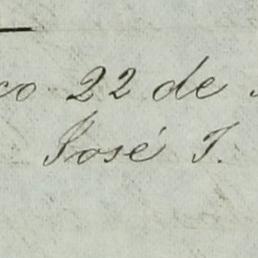 co 22 de
José T.